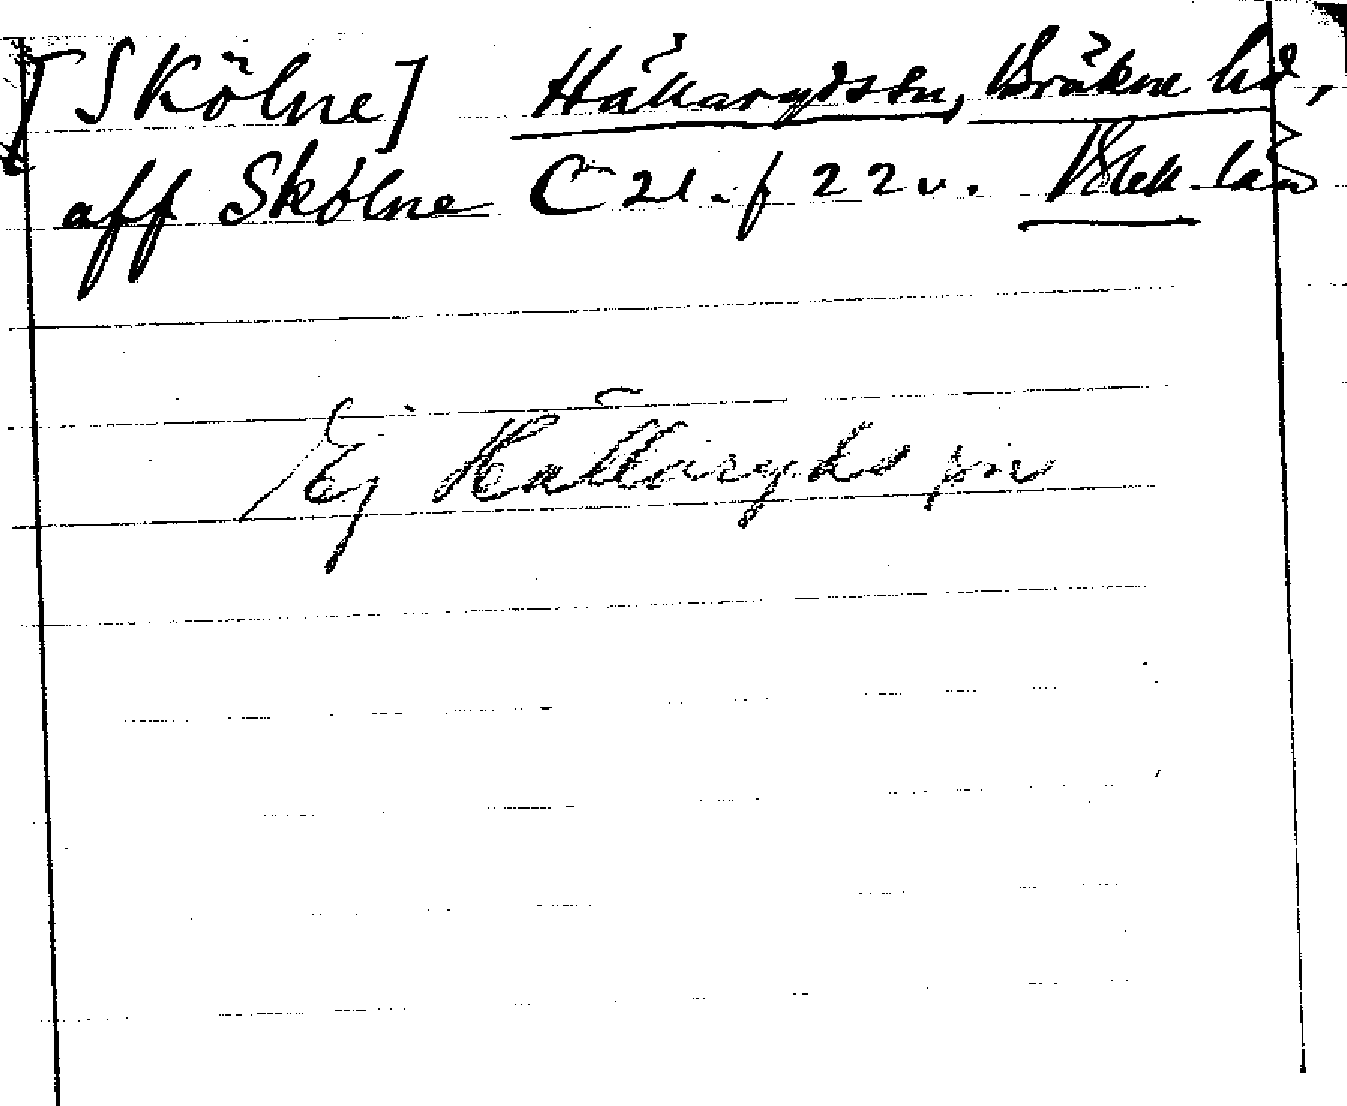 [Skölne] Hällaryds sn, Bräkne hd,
aff Skólne C 21. f 22 v. Blek. län
Ej Hällaryds sn